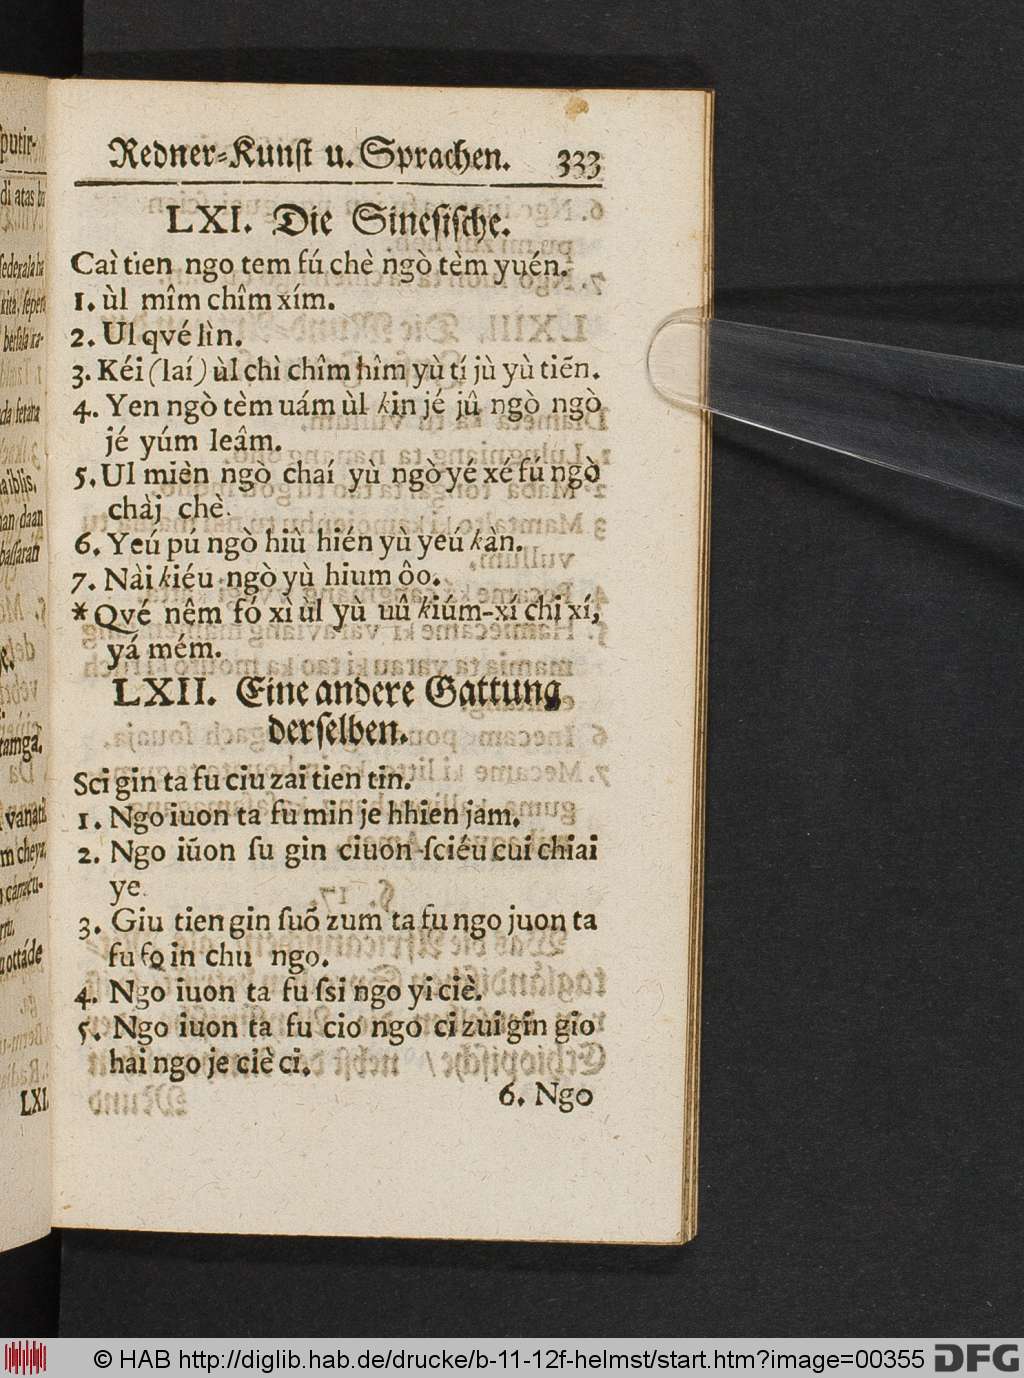 Redner-Kunſt u. Sprachen. 333
LXI. Die Sineſiſche.
Caì tien ngo tem fú chè ngò tèm yuén.
1. ùl mîm chîm xím.
2. Ul qvé lìn.
3. Kéi (laí) ùl chì chîm hîm yù tí jù yù tiēn.
4. Yen ngò tèm uám ùl kin jé jû ngò ngò
jé yúm leâm.
5. Ul mièn ngò chaí yù ngò yé xé fú ngò
chàj chè.
6. Yeú pú ngò hiù hién yù yeú kàn.
7. Nài kiéu ngò yù hium ôo.
* Qvé nêm fó xì ùl yù uû kiúm-xí chi xí,
yá mém.
LXII. Eine andere Gattung
derſelben.
Sci gin ta fu ciu zai tien tin.
1. Ngo iuon ta fu min je hhien jam.
2. Ngo iūon ſu gin ciuon ſciéu cui chiai
ye.
3. Giu tien gin ſuō zum ta fu ngo juon ta
fu ſo in chu ngo.
4. Ngo iuon ta fu ſsi ngo yi ciè.
5. Ngo iuon ta fu cio ngo ci zui gin gio
hai ngo je ciè ci.
6. Ngo
LXI.
© HAB http://diglib.hab.de/drucke/b-11-12f-helmst/start.htm?image=00355 DFG